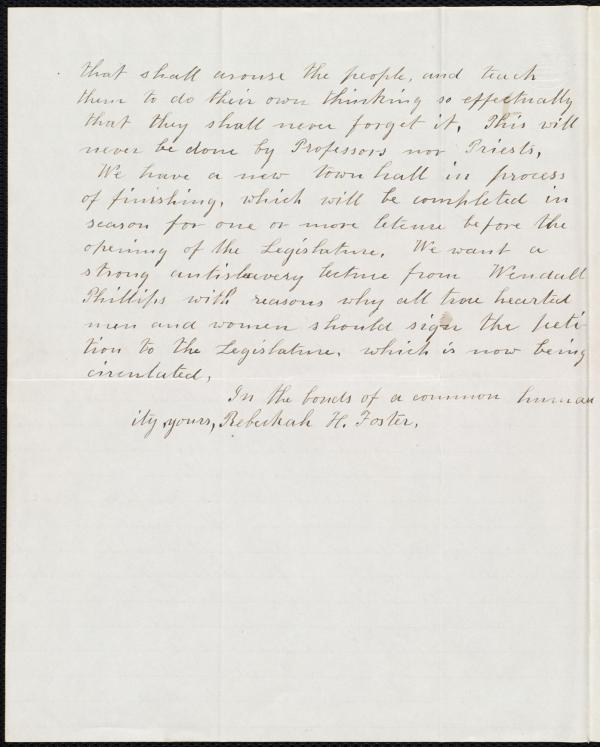 that shall arouse the people, and teach
them to do their own thinking so effectually
that they shall never forget it. This will
never be done by Professors nor Priests.
We have a new town hall in process
of finishing, which will be completed in
season for one or more leture before the
opening of the Legislature. We want a
strong antislavery lecture from Wendall
Phillips with reasons why all true hearted
men and women should sign the peti-
tion to the Legislature, which is now being
circulated.
In the bonds of a common human
ity, yours, Rebeckah H. Foster.